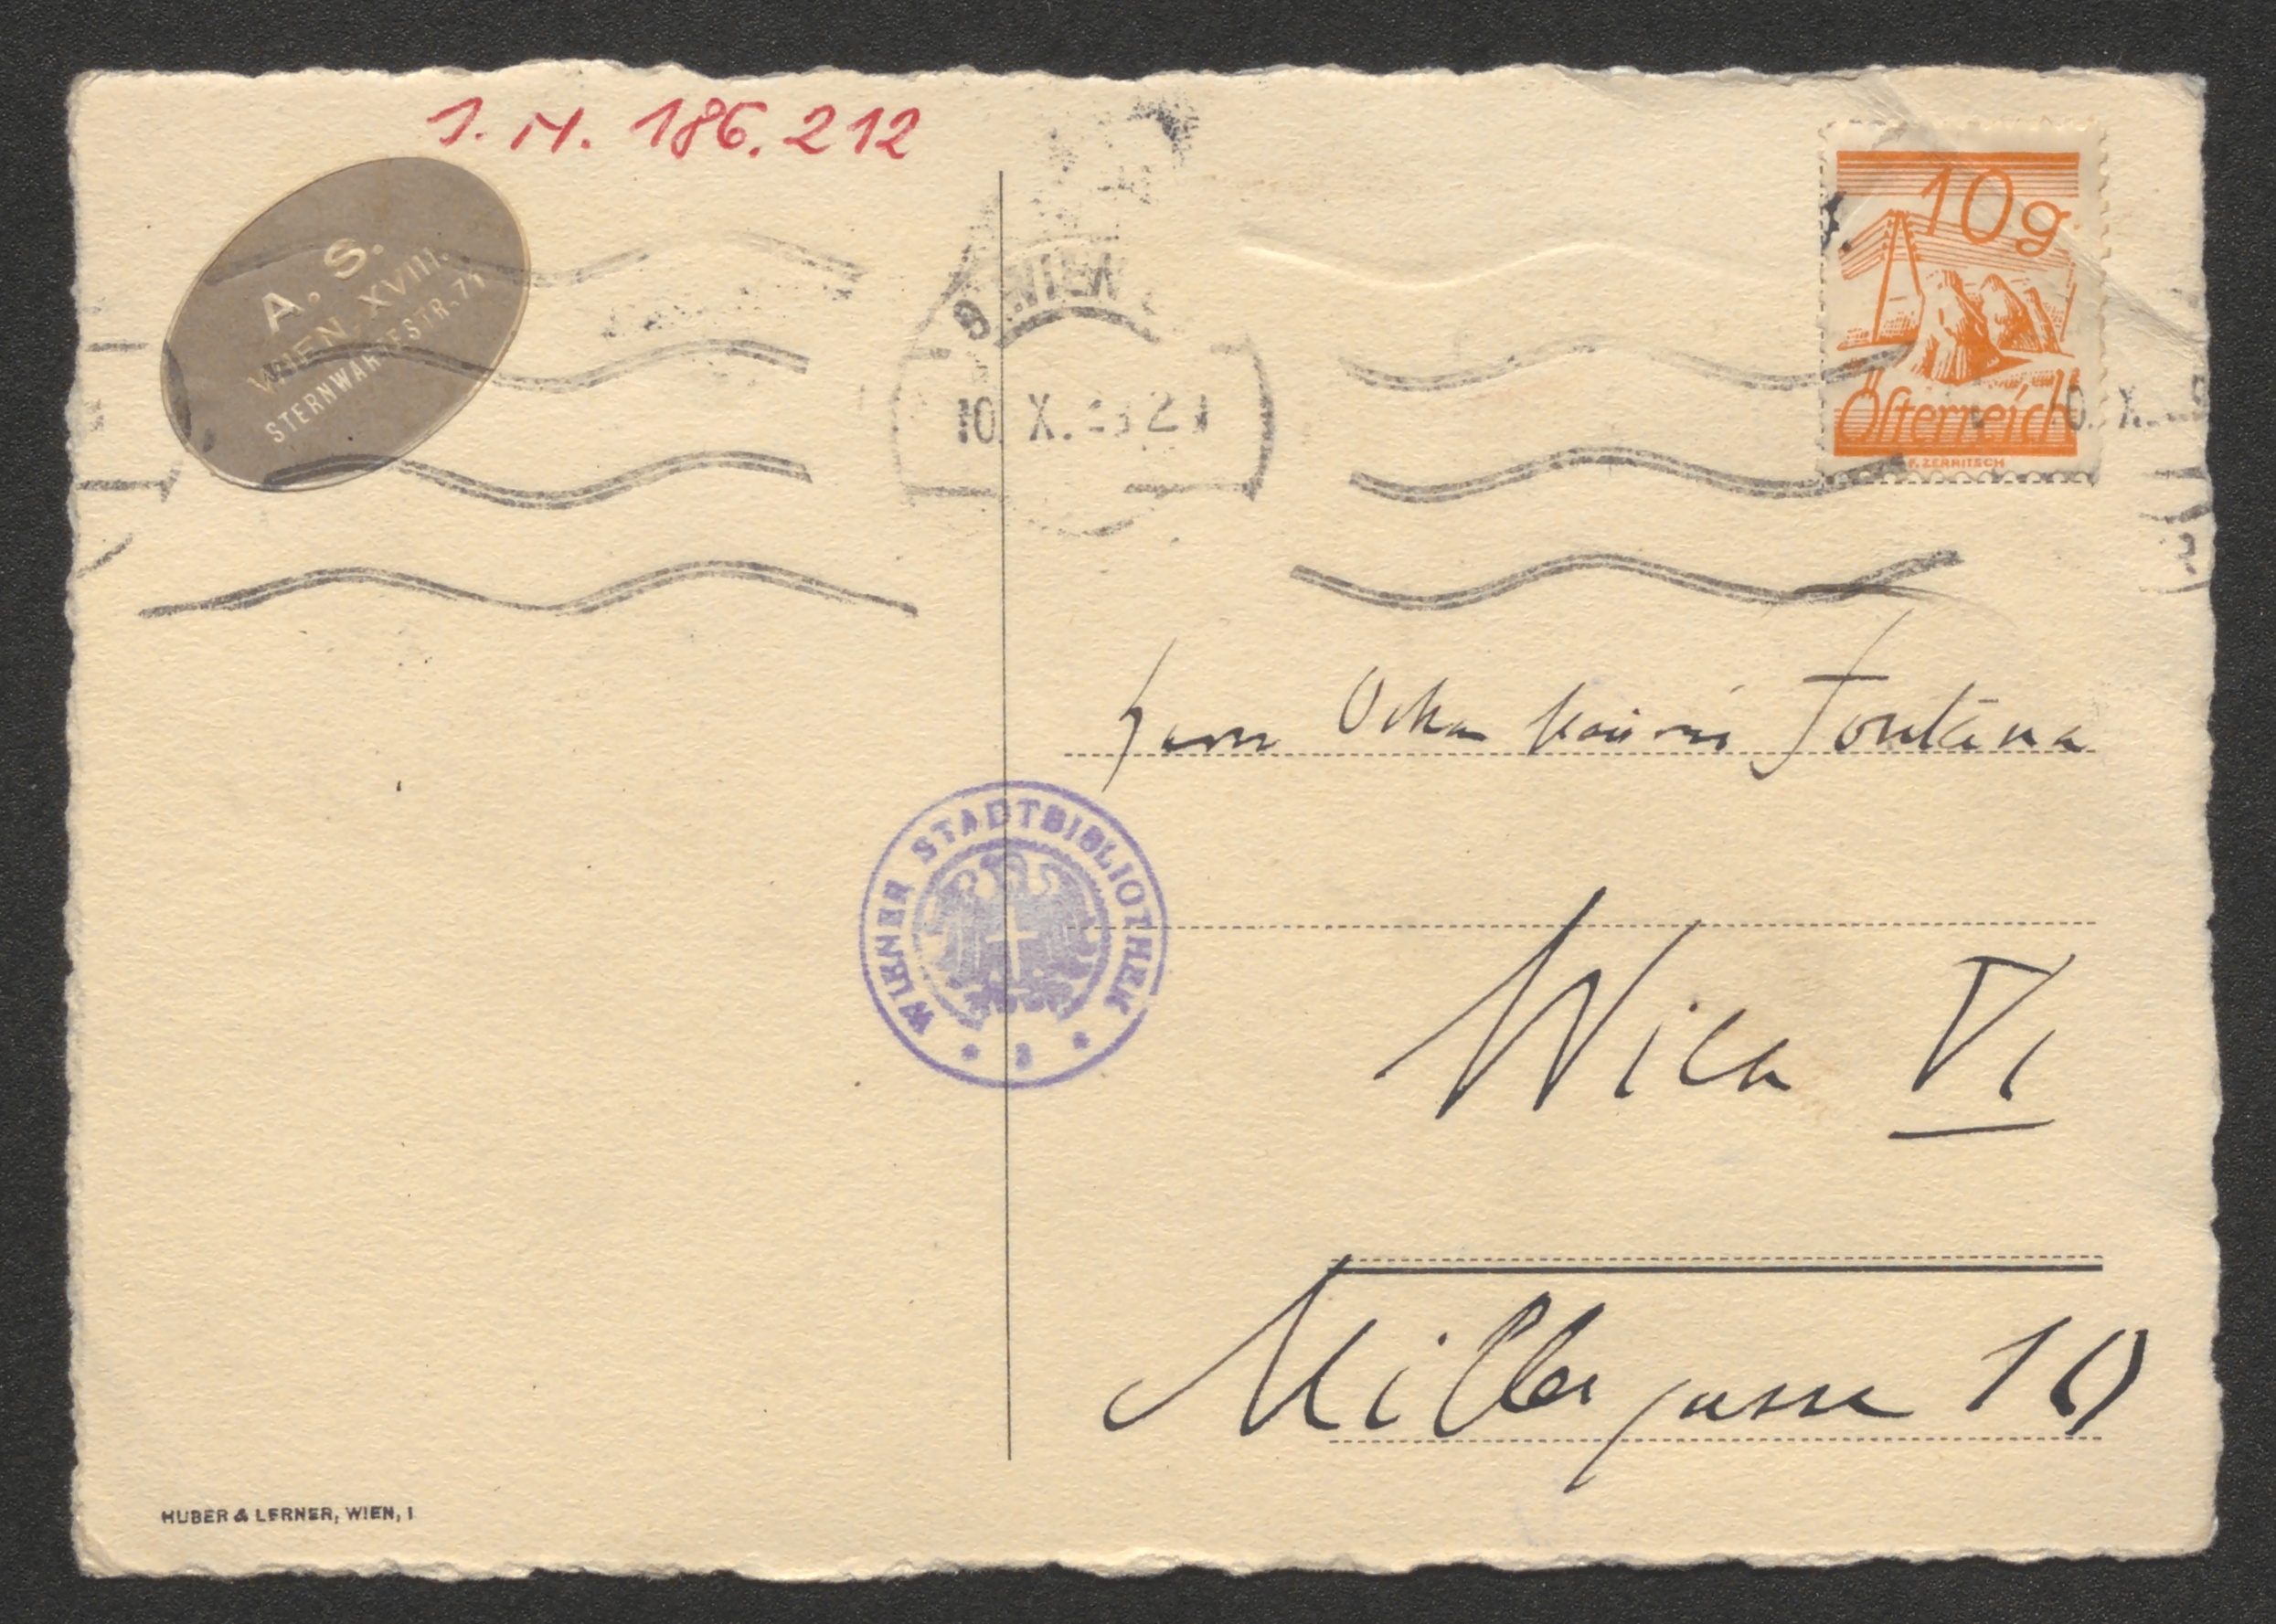 J.N. 186.212
A. S.
WIEN, XVIII.
STERNWARTESTR. 71
9 WIEN
10. X.
10g
Österreich
F. ZERRITSCH
10. X.
Herrn Oskar Maurus Fontana
WIENER STADTBIBLIOTHEK
Wien VI
Millergasse 10
HUBER & LERNER, WIEN, I